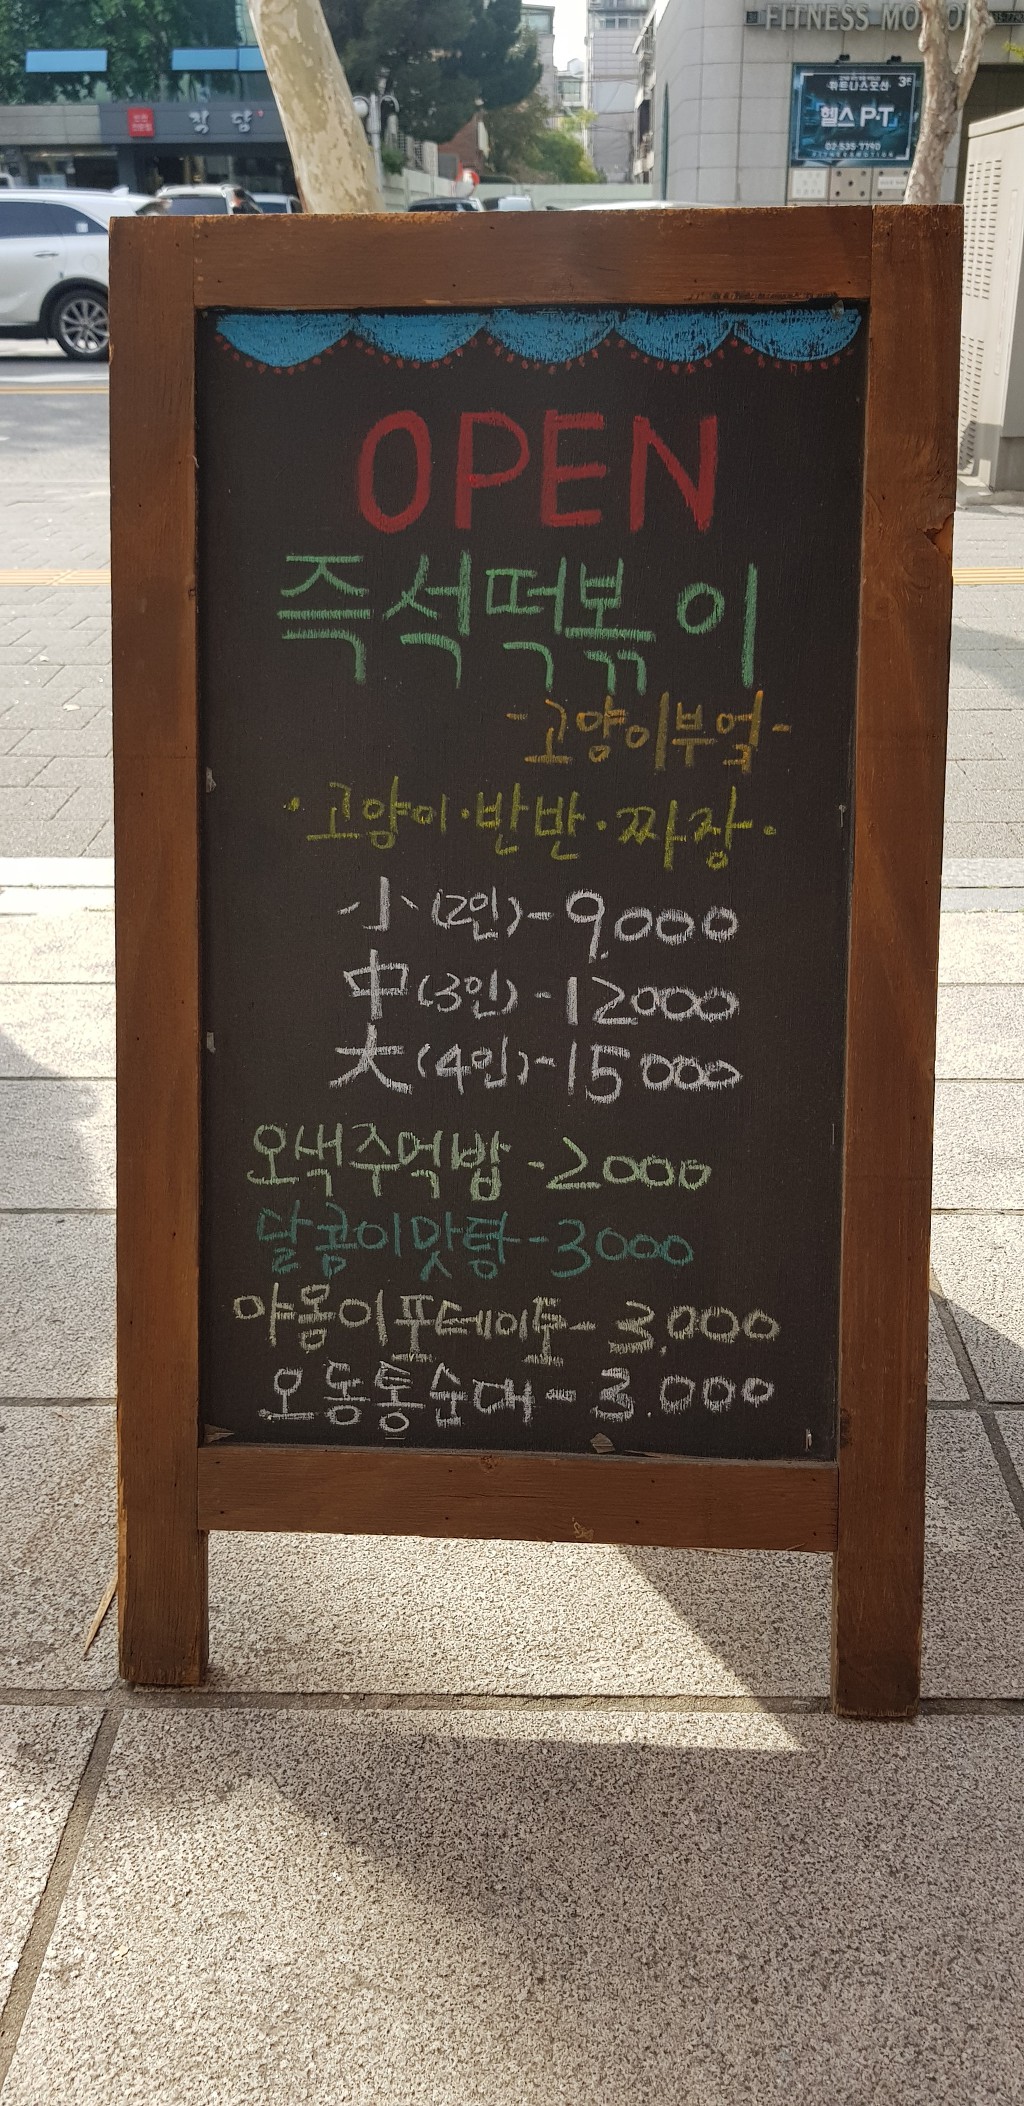 FITNESS MOTION
휘트니스모션 3F
헬스 P.T
02·535·7790
FITNESSMOTION
OPEN
즉석떡볶이
-고양이부엌-
·고양이·반반·짜장·
小(2인)-9,000
中(3인)-12000
大(4인)-15000
오색주먹밥-2000
달콤이맛탕-3000
야옹이포테이토-3,000
오동통순대-3.000